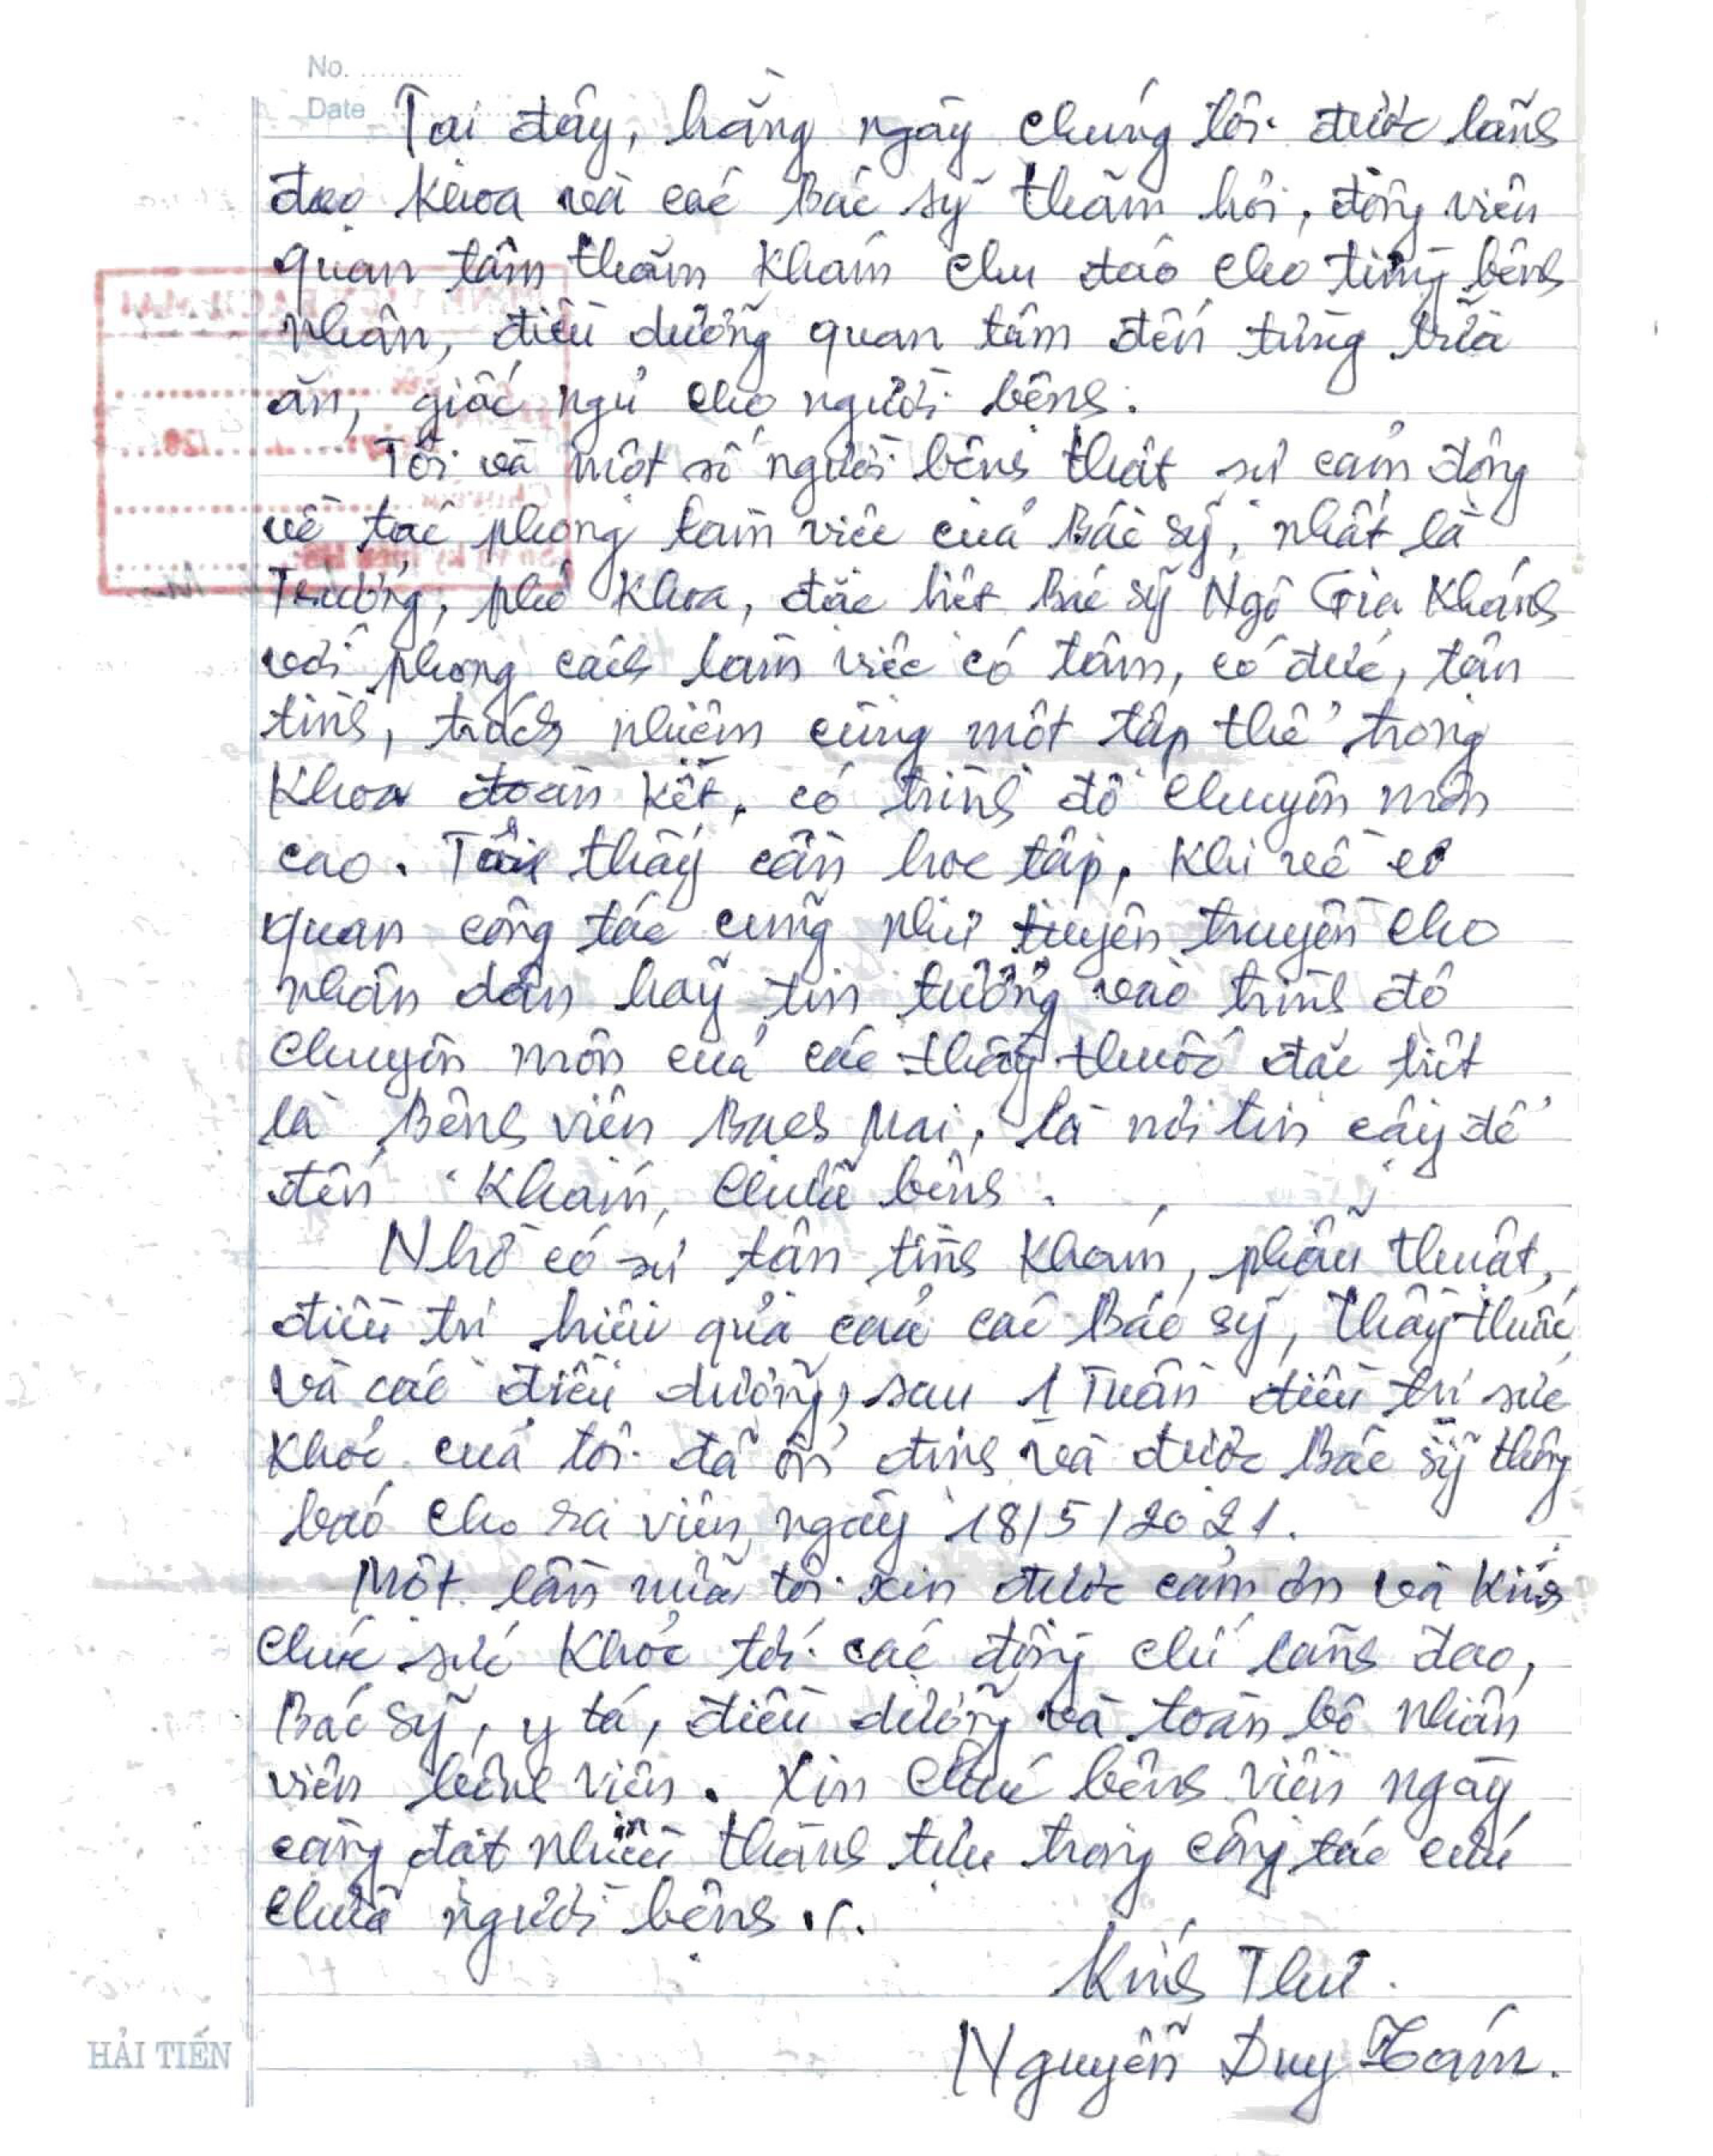 No. ............
Date ............
Tại đây, hằng ngày chúng tôi được lãnh
đạo Khoa và các Bác sỹ thăm hỏi, động viên
quan tâm thăm khám chu đáo cho từng bệnh
nhân, điều dưỡng quan tâm đến từng bữa
ăn, giấc ngủ cho người bệnh.
Tôi và một số người bệnh thật sự cảm động
về tác phong làm việc của Bác sỹ, nhất là
Trưởng, phó Khoa, đặc biệt Bác sỹ Ngô Gia Khánh
với phong cách làm việc có tâm, có đức, tận
tình, trách nhiệm cùng một tập thể trong
Khoa đoàn kết, có trình độ chuyên môn
cao. Tôi thấy cần học tập, khi về cơ
quan công tác cũng như tuyên truyền cho
nhân dân hãy tin tưởng vào trình độ
chuyên môn của các thầy thuốc đặc biệt
là Bệnh viện Bạch Mai, là nơi tin cậy để
đến khám, chữa bệnh.
Nhờ có sự tận tình khám, phẫu thuật,
điều trị hiệu quả của các Bác sỹ, thầy thuốc
và các điều dưỡng, sau 1 Tuần điều trị sức
khỏe của tôi đã ổn định và được Bác sỹ thông
báo cho ra viện ngày 18/5/2021.
Một lần nữa tôi xin được cảm ơn và kính
chúc sức khỏe tới các đồng chí lãnh đạo,
Bác sỹ, y tá, điều dưỡng và toàn bộ nhân
viên bệnh viện. Xin chúc bệnh viện ngày
càng đạt nhiều thành tựu trong công tác cứu
chữa người bệnh ./.
Kính Thư.
Nguyễn Duy Tám.
HẢI TIẾN